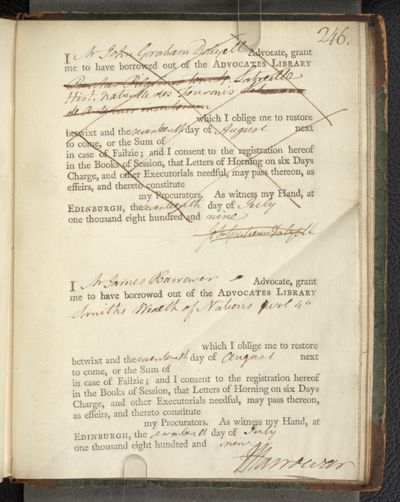 246.
I Mr John Graham Dalyell Advocate, grant
me to have borrowed out of the ADVOCATES LIBRARY
Latreille
Hist. naturelle des fourmis
de
which I oblige me to restore
betwixt and the seventeenth day of August next
to come, or the Sum of
in case of Failzie; and I consent to the registration hereof
in the Books of Session, that Letters of Horning on six Days
Charge, and other Executorials needful, may pass thereon, as
effeirs, and thereto constitute
my Procurators. As witness my Hand, at
EDINBURGH, the seventeenth day of July
one thousand eight hundred and nine
I Mr James Harrower Advocate, grant
me to have borrowed out of the ADVOCATES LIBRARY
Smiths Wealth of Nations vol 4to
which I oblige me to restore
betwixt and the seventeenth day of August next
to come, or the Sum of
in case of Failzie; and I consent to the registration hereof
in the Books of Session, that Letters of Horning on six Days
Charge, and other Executorials needful, may pass thereon,
as effeirs, and thereto constitute
my Procurators. As witness my Hand, at
EDINBURGH, the seventeenth day of July
one thousand eight hundred and nine
J Harrower